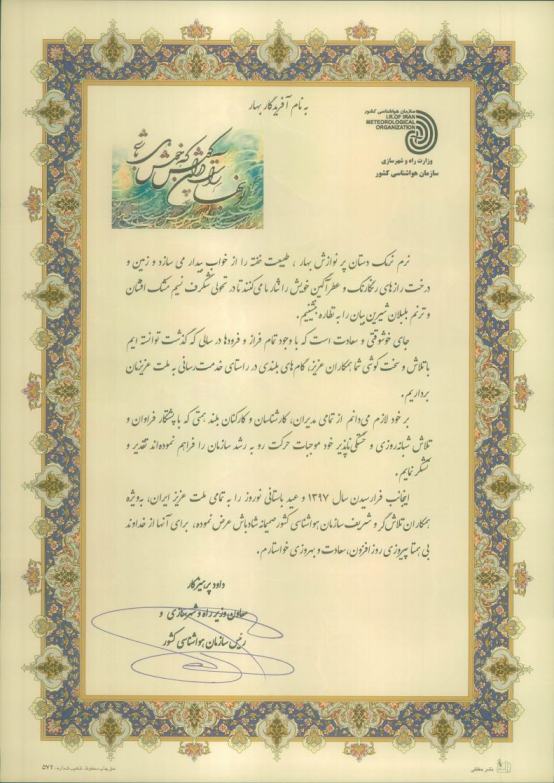 به نام آفریدگار بهار
سازمان هواشناسی کشور
I.R.OF IRAN
METEOROLOGICAL
ORGANIZATION
وزارت راه و شهرسازی
سازمان هواشناسی کشور
نرم نرمک دستان پر نوازش بهار ، طبیعت خفته را از خواب بیدار می سازد و زمین و
درخت رازهای رنگارنگ و عطرآگین خویش را نثار ما می‌کنند تا در تحولی شگرف نسیم مشک افشان
و ترنم بلبلان شیرین بیان را به نظاره بنشینیم.
جای خوشوقتی و سعادت است که با وجود تمام فراز و فرودها در سالی که گذشت توانسته ایم
با تلاش و سخت کوشی شما همکاران عزیز، گام های بلندی در راستای خدمت‌رسانی به ملت عزیزمان
برداریم.
بر خود لازم می‌دانم از تمامی مدیران، کارشناسان و کارکنان بلند همتی که با پشتکار فراوان و
تلاش شبانه‌روزی و خستگی‌ناپذیر خود موجبات حرکت رو به رشد سازمان را فراهم نموده‌اند تقدیر و
تشکر نمایم.
اینجانب فرا رسیدن سال ۱۳۹۷ و عید باستانی نوروز را به تمامی ملت عزیز ایران، به‌ویژه
همکاران تلاش‌گر و شریف سازمان هواشناسی کشور صمیمانه شادباش عرض نموده، برای آنها از خداوند
بی همتا پیروزی روزافزون، سعادت و بهروزی خواستارم.
داود پرهیزکار
معاون وزیر راه و شهرسازی و
رئیس سازمان هواشناسی کشور